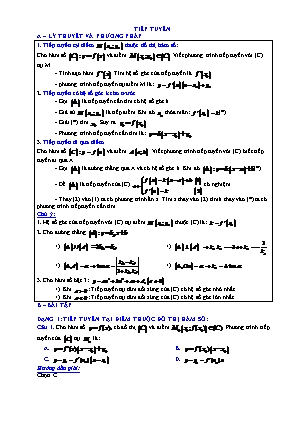 TIẾP TUYẾN
A – LÝ THUYẾT VÀ PHƯƠNG PHÁP
1. Tiếp tuyến tại điểm M(x₀;y₀) thuộc đồ thị hàm số:
Cho hàm số (C): y=f(x) và điểm M(x₀;y₀)∈(C). Viết phương trình tiếp tuyến với (C)
tại M.
- Tính đạo hàm f'(x). Tìm hệ số góc của tiếp tuyến là f'(x₀)
- phương trình tiếp tuyến tại điểm M là:
2. Tiếp tuyến có hệ số góc k cho trước
- Gọi (Δ) là tiếp tuyến cần tìm có hệ số góc k.
- Giả sử M(x₀;y₀) là tiếp điểm. Khi đó x₀ thỏa mãn: f'(x₀)=k (*)
- Giải (*) tìm x₀. Suy ra y₀=f(x₀).
- Phương trình tiếp tuyến cần tìm là: y=k(x-x₀)+y₀
3. Tiếp tuyến đi qua điểm
Cho hàm số (C): y=f(x) và điểm A(a;b). Viết phương trình tiếp tuyến với (C) biết tiếp
tuyến đi qua A.
- Gọi (Δ) là đường thẳng qua A và có hệ số góc k. Khi đó (Δ): y=k(x-a)+b (*)
- Để (Δ) là tiếp tuyến của (C) có nghiệm.
- Thay (2) vào (1) ta có phương trình ẩn x. Tìm x thay vào (2) tìm k thay vào (*) ta có
phương trình tiếp tuyến cần tìm.
Chú ý:
1. Hệ số góc của tiếp tuyến với (C) tại điểm M(x₀;y₀) thuộc (C) là: k=f'(x₀)
2. Cho đường thẳng
3. Cho hàm số bậc 3: y=ax³+bx²+cx+d, (a≠0)
+) Khi a>0: Tiếp tuyến tại tâm đối xứng của (C) có hệ số góc nhỏ nhất.
+) Khi a<0: Tiếp tuyến tại tâm đối xứng của (C) có hệ số góc lớn nhất.
B – BÀI TẬP
DẠNG 1: TIẾP TUYẾN TẠI ĐIỂM THUỘC ĐỒ THỊ HÀM SỐ:
Câu 1. Cho hàm số y=f(x), có đồ thị (C) và điểm M₀(x₀;f(x₀))∈(C). Phương trình tiếp
tuyến của (C) tại M₀ là:
A. y=f'(x)(x-x₀)+y₀. B. y=f'(x₀)(x-x₀).
C. y-y₀=f'(x₀)(x-x₀). D. y-y₀=f'(x₀)x.
Hướng dẫn giải:
Chọn C